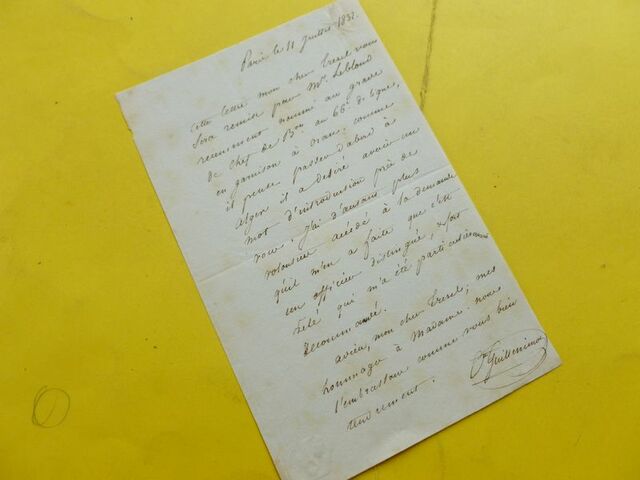 Paris le 11 Juillet 1832.
Cette lettre mon cher Trezel vous
sera remise par Mr. Leblond
récemment nommé au grade
de chef de Bon. au 66e. de ligne,
en garnison à Oran. comme
il pense passer d'abord à
Alger il a désiré avoir un
mot d'introduction près de
vous. J'ai d'autant plus
volontiers accédé à la demande
qu'il m'en a faite que c'est
un officier distingué, & fort
zélé qui m'a été particulièrement
recommandé.
adieu, mon cher Trezel; mes
hommages à Madame. nous
l'embrassons comme vous bien
tendrement.
Guilleminot